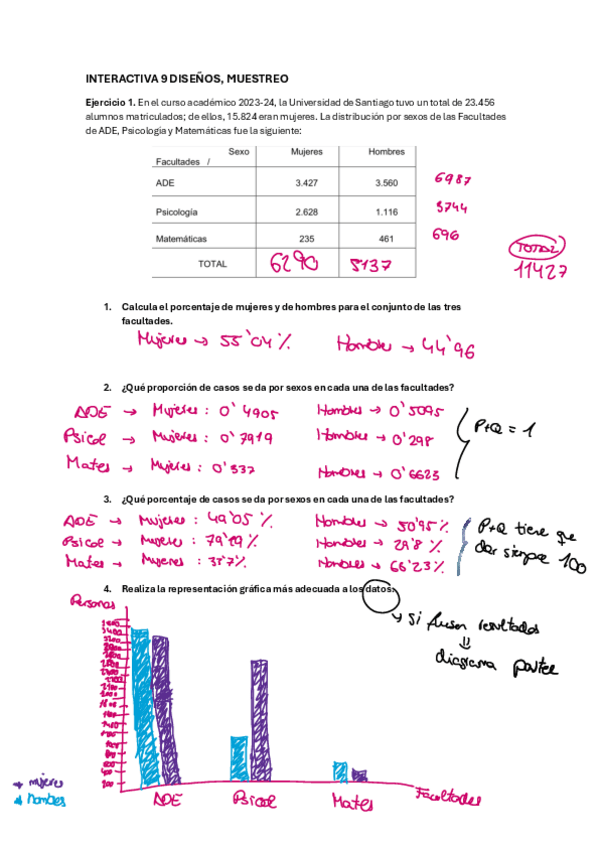 INTERACTIVA 9 DISEÑOS, MUESTREO
Ejercicio 1. En el curso académico 2023-24, la Universidad de Santiago tuvo un total de 23.456
alumnos matriculados; de ellos, 15.824 eran mujeres. La distribución por sexos de las Facultades
de ADE, Psicología y Matemáticas fue la siguiente:
Sexo Mujeres Hombres
Facultades /
ADE 3.427 3.560 6987
Psicología 2.628 1.116 3744
Matemáticas 235 461 696
TOTAL 6290 5137
TOTAL
11427
1. Calcula el porcentaje de mujeres y de hombres para el conjunto de las tres
facultades.
Mujeres → 55'04% Hombres → 44'96
2. ¿Qué proporción de casos se da por sexos en cada una de las facultades?
ADE → Mujeres : 0'4905 Hombres → 0'5095
Psicol → Mujeres : 0'7919 Hombres → 0'298
Mates → Mujeres : 0'337 Hombres → 0'6623
P+Q = 1
3. ¿Qué porcentaje de casos se da por sexos en cada una de las facultades?
ADE → Mujeres : 49'05% Hombres → 50'95%
Psicol → Mujeres : 79'19% Hombres → 29'8%
Mates → Mujeres : 33'7% Hombres → 66'23%
P+Q tiene que
dar siempre 100
4. Realiza la representación gráfica más adecuada a los datos.
→ si fuesen resultados
⇓
diagrama
Personas
→ mujeres
hombres
ADE Psicol Mates Facultades